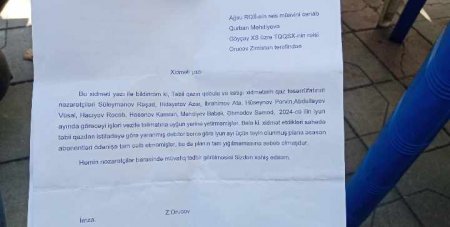 Ağsu RQİS-nin rəis müavini cənab
Qurban Mehdiyevə
Göyçay XS üzrə TQQSX-nin rəisi
Orucov Zimistan tərəfindən
Xidməti yazı
Bu xidməti yazı ilə bildirirəm ki, Təbii qazın qəbulu və satışı xidmətinin qaz təsərrüfatının
nəzarətçiləri Süleymanov Rəşad, Hidayətov Azər, İbrahimov Ata, Hüseynov Pərvin, Abdullayev
Vüsal, Hacıyev Rəcəb, Həsənov Kamran, Mehdiyev Babək, Əhmədov Səməd, 2024-cü ilin iyun
ayında görəcəyi işləri vəzifə təlimatına uyğun yerinə yetirməmişlər. Belə ki, xidmət etdikləri sahədə
təbii qazdan istifadəyə görə yaranmış debitor borca görə iyun ayı üçün təyin olunmuş plana əsasən
abonentləri ödənişə tam cəlb etməmişlər, bu da planın tam yığılmamasına səbəb olmuşdur.
Həmin nəzarətçilər barəsində müvafiq tədbir görülməsini Sizdən xahiş edirəm.
İmza:
Z.Orucov